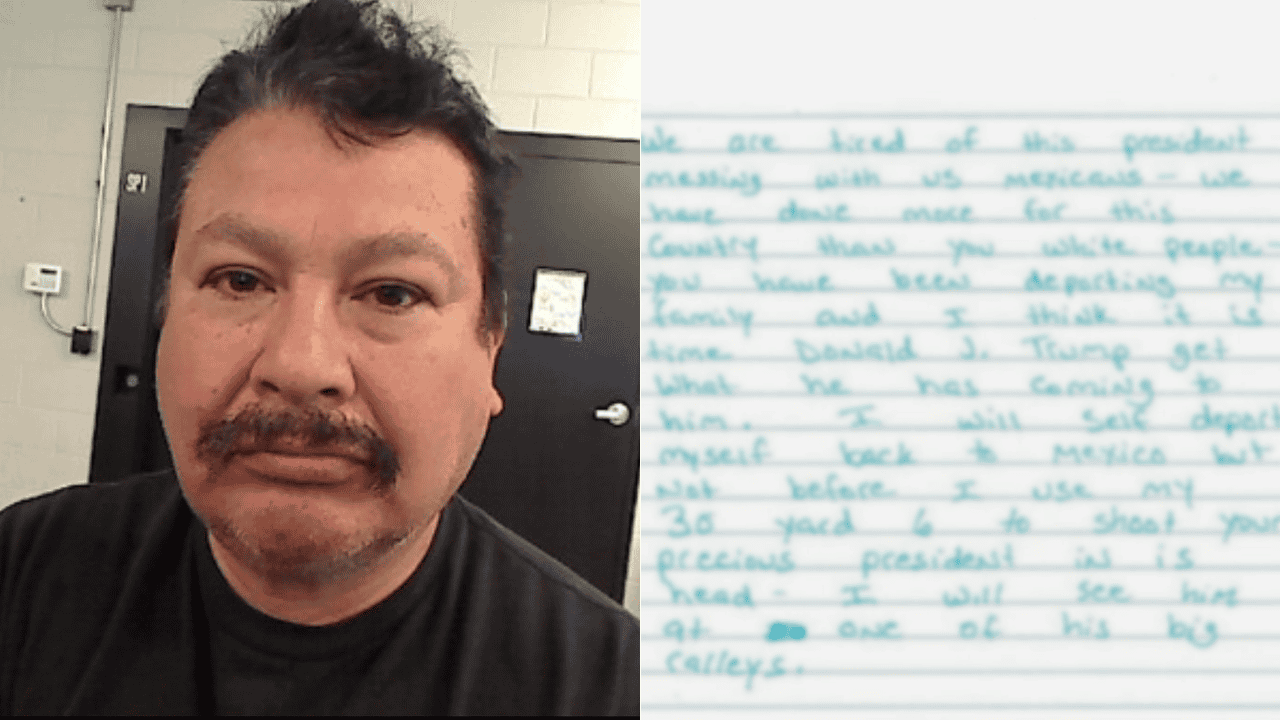 SP1
We are tired of this president
messing with us mexicans - we
have done more for this
Country than you white people -
you have been deporting my
family and I think it is
time Donald J. Trump get
what he has coming to
him. I will self deport
myself back to mexico but
Not before I use my
30 yard 6 to shoot your
precious president in is
head - I will see him
at one of his big
ralleys.